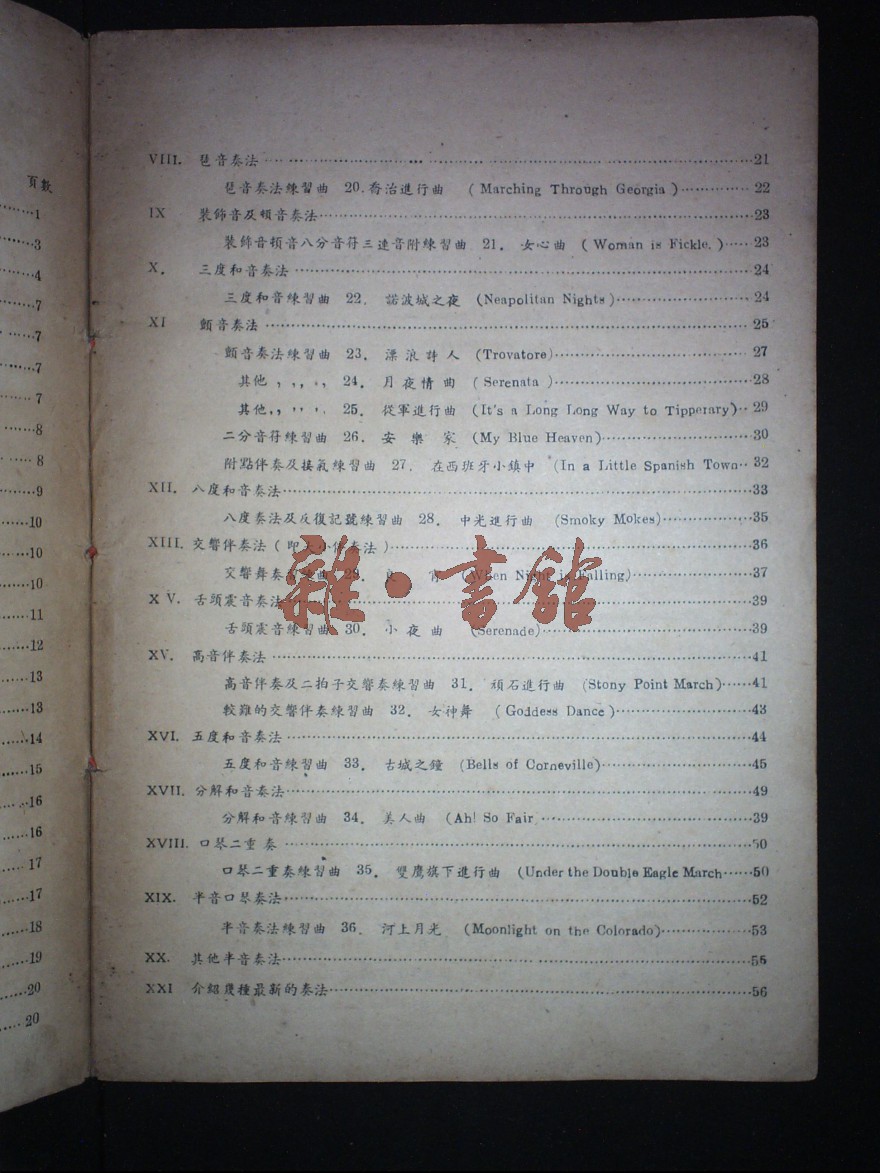 頁數
1
3
4
7
7
7
7
8
8
9
10
10
10
11
12
13
13
14
15
16
16
17
17
18
19
20
20
VIII. 琶音奏法 21
琶音奏法練習曲 20. 喬治進行曲 (Marching Through Georgia) 22
IX 裝飾音及頓音奏法 23
裝飾音頓音八分音符三連音附練習曲 21. 女心曲 (Woman is Fickle.) 23
X. 三度和音奏法 24
三度和音練習曲 22. 諾波城之夜 (Neapolitan Nights) 24
XI 顫音奏法 25
顫音奏法練習曲 23. 漂浪詩人 (Trovatore) 27
其他 , , , , 24. 月夜情曲 (Serenata) 28
其他 , , , , 25. 從軍進行曲 (It's a Long Long Way to Tipperary) 29
二分音符練習曲 26. 安樂家 (My Blue Heaven) 30
附點伴奏及接氣練習曲 27. 在西班牙小鎮中 (In a Little Spanish Town 32
XII. 八度和音奏法 33
八度奏法及反復記號練習曲 28. 中光進行曲 (Smoky Mokes) 35
XIII. 交響伴奏法 (即大小伴奏法) 36
交響舞奏 曲 29. 良宵 (When Night is Falling.) 37
X V. 舌頭震音奏法 39
舌頭震音練習曲 30. 小夜曲 (Serenade) 39
XV. 高音伴奏法 41
高音伴奏及二拍子交響奏練習曲 31. 頑石進行曲 (Stony Point March) 41
較難的交響伴奏練習曲 32. 女神舞 (Goddess Dance) 43
XVI. 五度和音奏法 44
五度和音練習曲 33. 古城之鐘 (Bells of Corneville) 45
XVII. 分解和音奏法 49
分解和音練習曲 34. 美人曲 (Ah! So Fair 39
XVIII. 口琴二重奏 50
口琴二重奏練習曲 35. 雙鷹旗下進行曲 (Under the Double Eagle March 50
XIX. 半音口琴奏法 52
半音奏法練習曲 36. 河上月光 (Moonlight on the Colorado) 53
XX. 其他半音奏法 55
XXI 介紹幾種最新的奏法 56
雜·書館